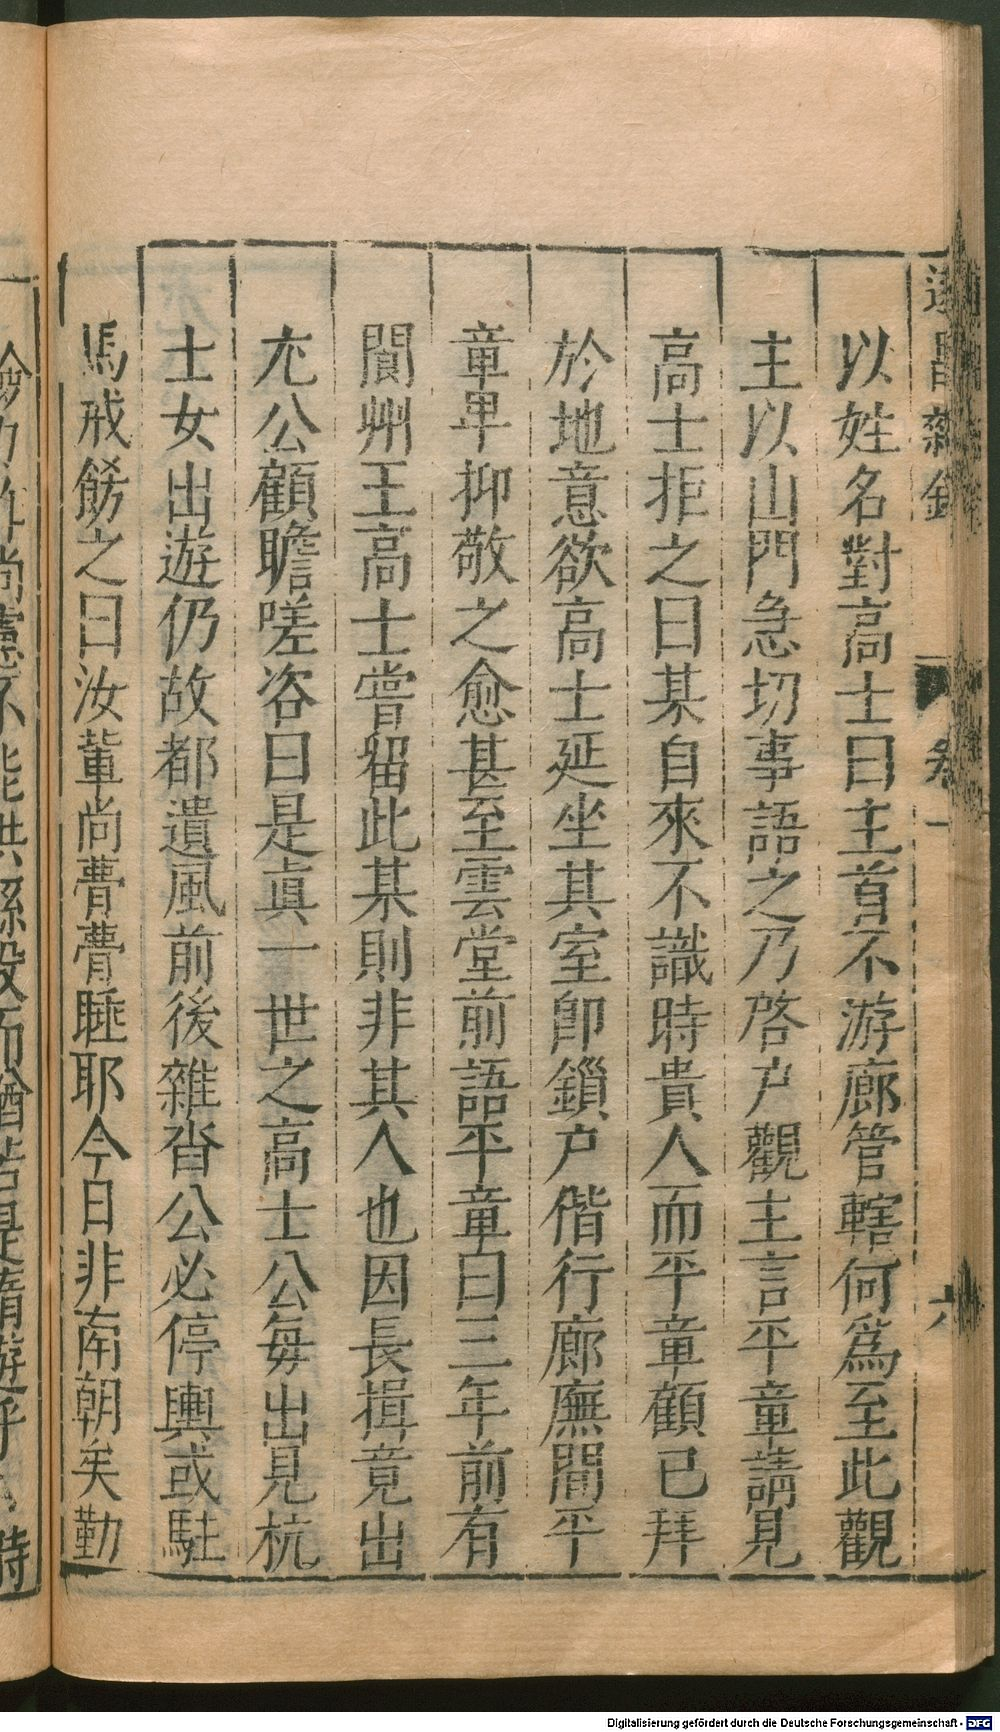 遂昌雜錄
卷一
六
以姓名對高士曰主首不游廊管轄何爲至此觀
主以山門急切事語之乃啓户觀主言平童請見
高士拒之曰某自來不識時貴人而平章顧已拜
於地意欲高士延坐其室卽鎖户偕行廊廡間平
章卑抑敬之愈甚至雲堂前語平童曰三年前有
閬州王高士嘗留此某則非其人也因長揖竟出
尢公顧瞻嗟咨曰是眞一世之高士公每出見杭
士女出遊仍故都遺風前後雜沓公必停輿或駐
馬戒飭之曰汝輩尚瞢瞢睡耶今日非南朝矣勤
Digitalisierung gefördert durch die Deutsche Forschungsgemeinschaft - DFG